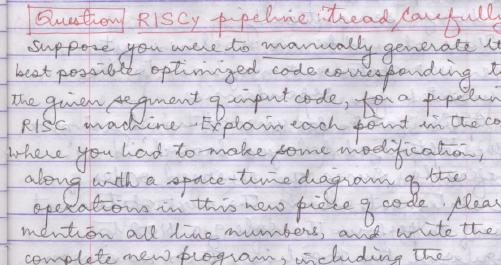 Question RISCy pipeline: tread carefully
Suppose you were to manually generate t
best possible optimized code corresponding t
the given segment of input code, for a pipelin
RISC machine. Explain each point in the co
where you had to make some modification,
along with a space-time diagram of the
operations in this new piece of code. Clear
mention all line numbers, and write the
complete new program, including the